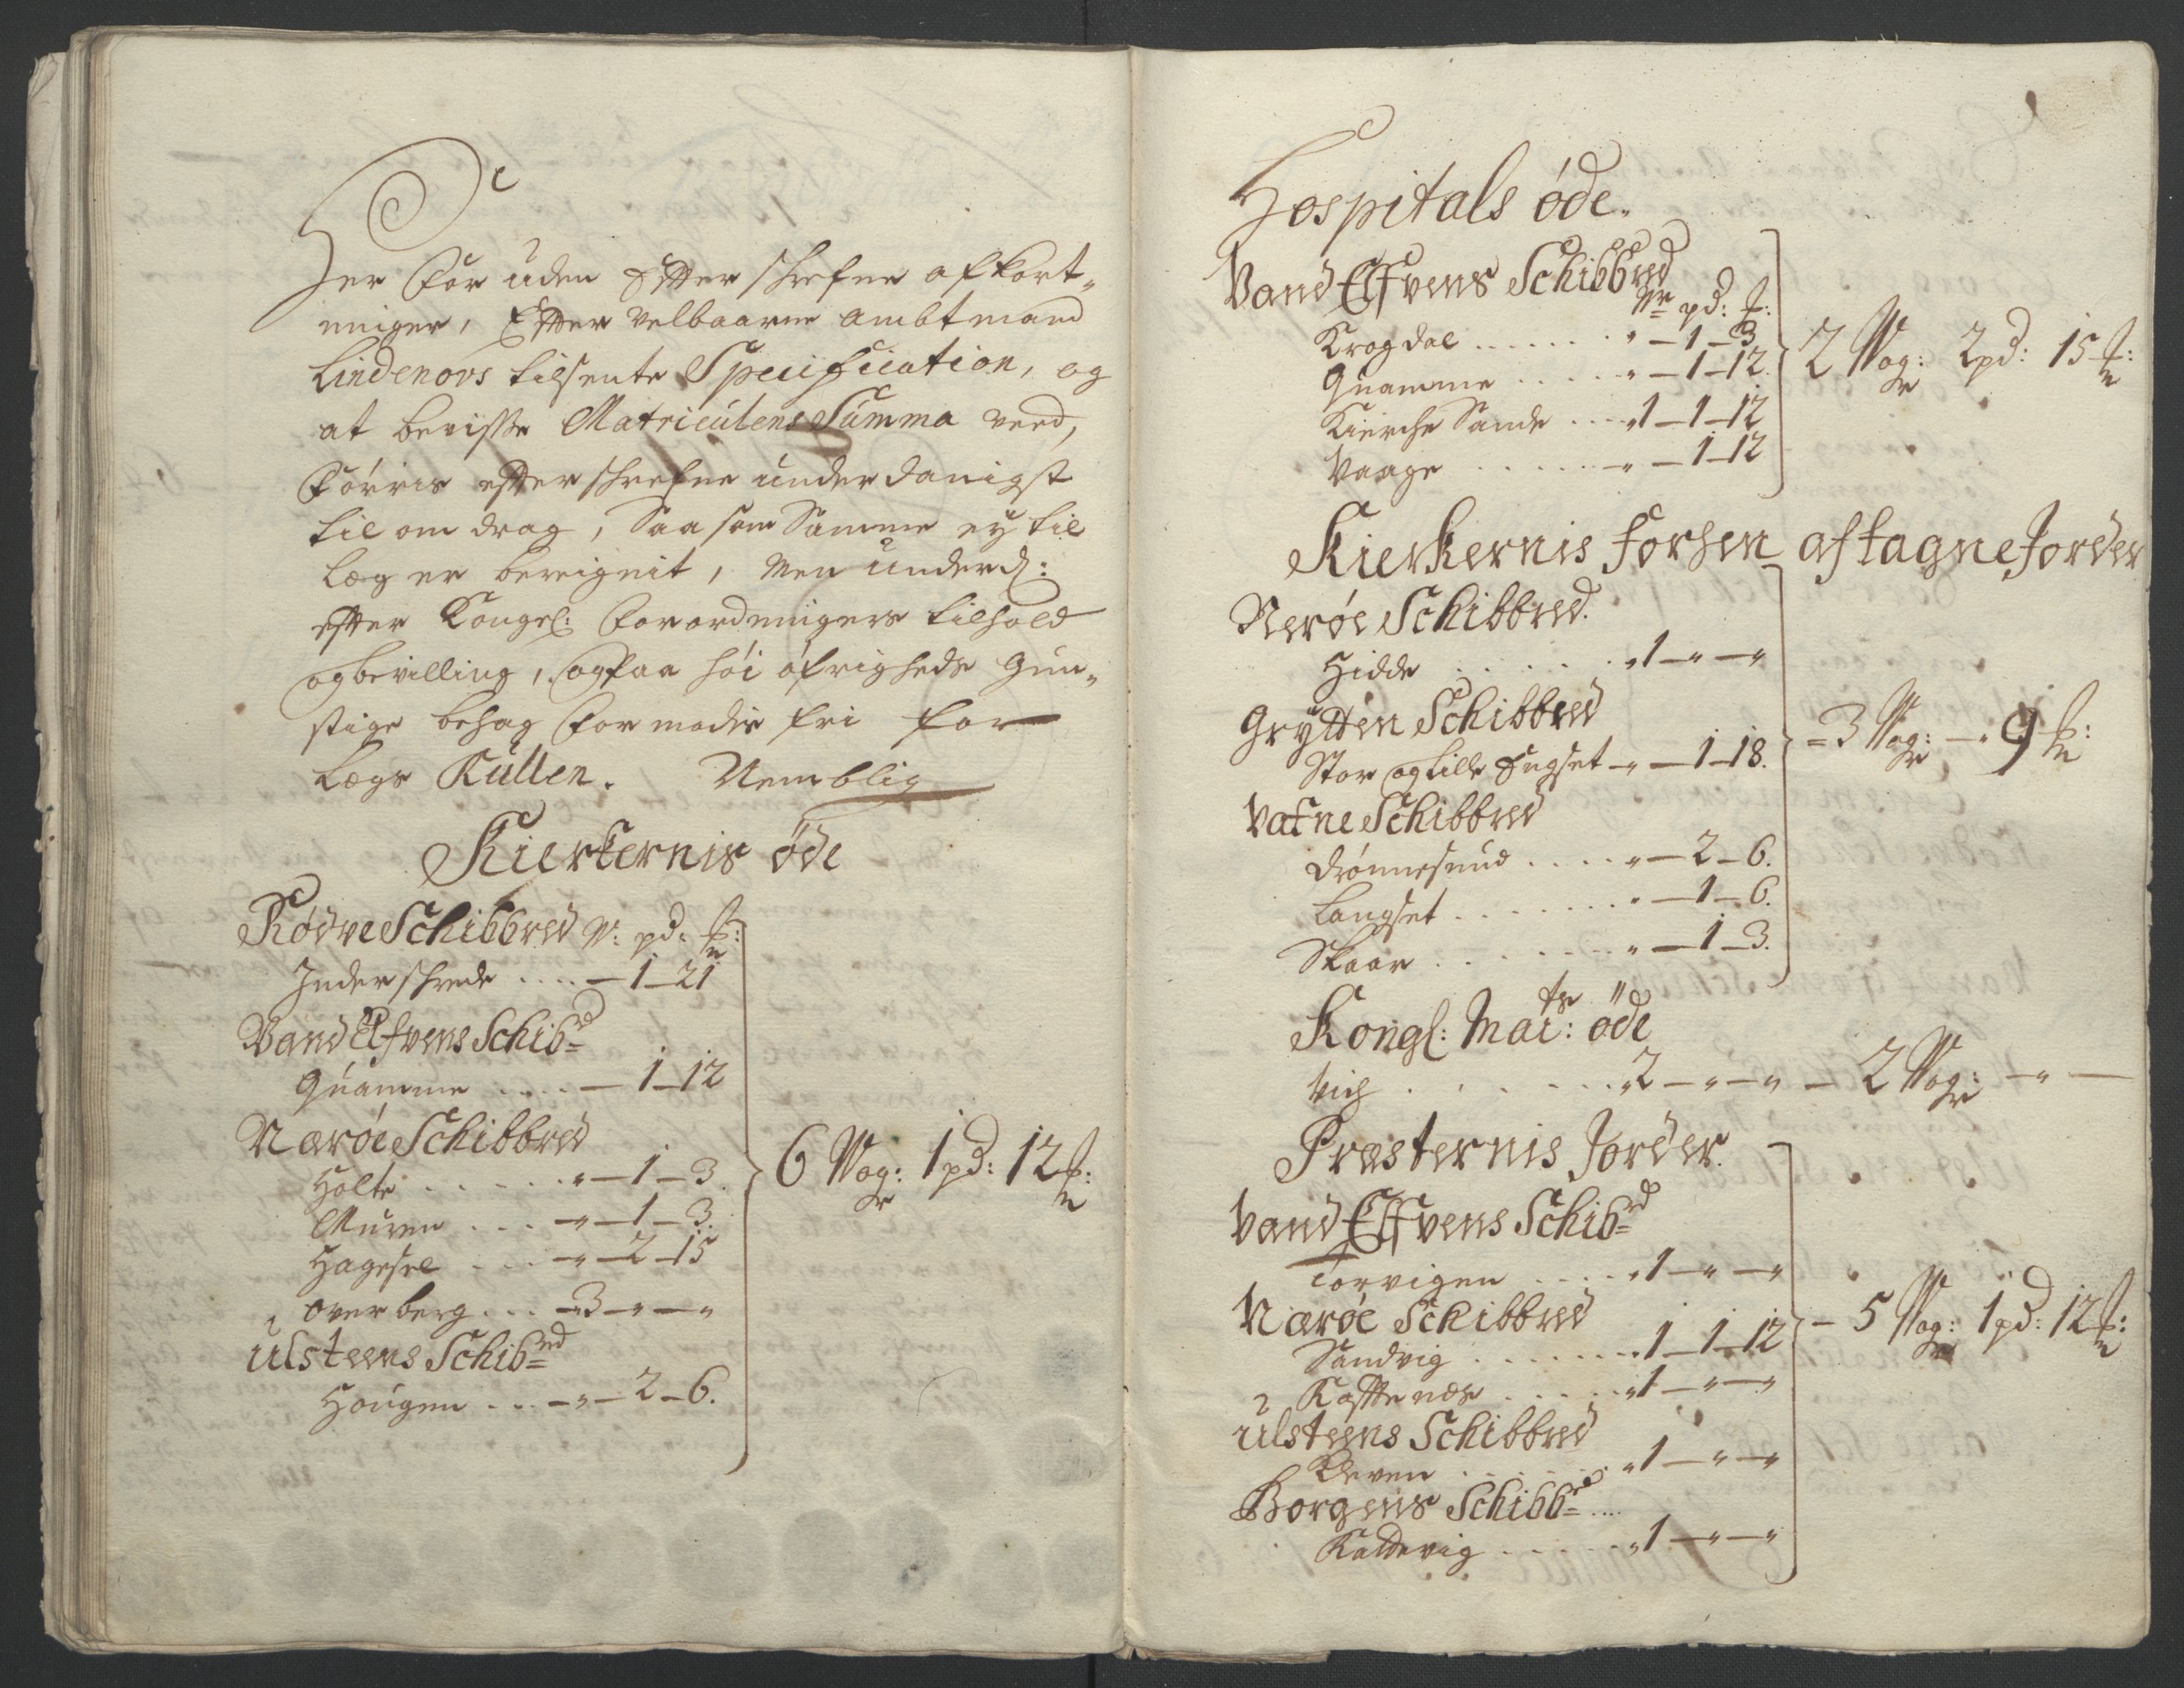 Her For uden Effterschrefne afkort-
ninger, Effter Velbaarne Ambtmand
Lindenovs tilsente Specification, og
at beviisse Matriculens Summa verd,
Førris effterschrefne underdanigst
til omdrag, Saa som Samme ey til
Læg er bereignit, Men underd:
effter Kongel: Forordningers tilhold
og bevilling, og paa høi øfrigheds Gun-
stige behag Formodis fri for
Lægs Rullen. Nemblig
Kierkernis øde
Rødve Schibbred W: pd: ℔:
Inderschrede .... — 1 — 21
Vand Elfvens Schibrd
Quamme .... — 1 — 12
Nærøe Schibbred
Holte ..... „ — 1 — 3.
Muren ... „ — 1 — 3.
Hagesel ... „ — 2 — 15
6 Wog: 1 pd: 12 ℔:
Overberg ... 3 — „ — „
Ulsteens Schibrd
Hougen ... „ — 2 — 6.
Hospitals øde.
Vand Elfvens Schibbred
W pd: ℔:
Krogdal ...... „ — 1 — 3
Quamme ..... „ — 1 — 12.
Kierche Sande ... 1 — 1 — 12
Vaage ...... „ — 1 — 12
2 Wog: 2 pd: 15 ℔:
Kierkernis forhen aftagne Jorder
Nerøe Schibbred.
Hidde ...... 1 — „ — „
Grytten Schibbred
Stor og Lille Fugset „ — 1 — 18.
= 3 Wog: — „ 9 ℔:
Vatne Schibbred
Drønnesund .... „ — 2 — 6.
Langset ....... „ — 1 — 6.
Skaar ....... „ — 1 — 3.
Kongl: Mai: ts øde
Vig ....... 2 — „ — „ — 2 Wog: — „ —
Præsternis Jorder.
Vand Elfvens Schibrd
Torvigen .... 1 — „ — „
Nærøe Schibbred
Sandvig ....... 1 — 1 — 12
— 5 Wog: 1 pd: 12 ℔:
..... 1 — „ — „
Ulsteens Schibbred
Kleven ...... 1 — „ — „
Borgens Schibbrd ....
Kaldevig ..... 1 — „ — „